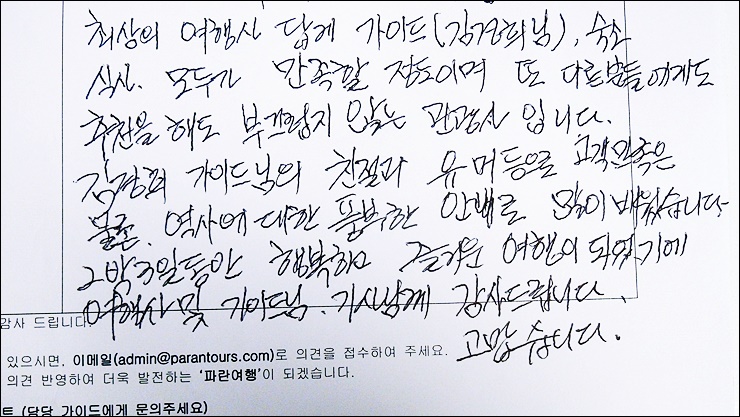 최상의 여행사 답게 가이드(김경희님), 숙소
식사. 모두가 만족할 정도이며 또 다른분들에게도
추천을 해도 부끄럽지 않는 관광사 입니다.
김경희 가이드님의 친절과 유머등으로 고객만족은
물론. 역사에 대한 풍부한 안내로 많이 배웠습니다
2박3일동안 행복하고 즐거운 여행이 되었기에
여행사 및 가이드님. 기사님께 감사드립니다.
고맙습니다.
감사 드립니다
있으시면, 이메일(admin@parantours.com)로 의견을 접수하여 주세요.
의견 반영하여 더욱 발전하는 '파란여행'이 되겠습니다.
트 (담당 가이드에게 문의주세요)